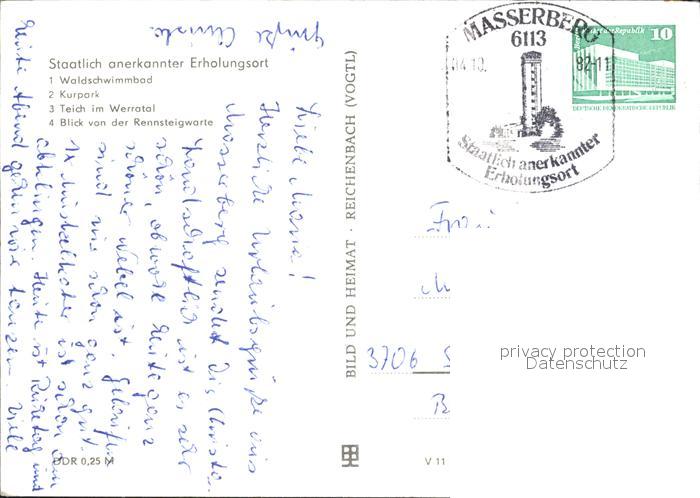 Staatlich anerkannter Erholungsort
1 Waldschwimmbad
2 Kurpark
3 Teich im Werratal
4 Blick von der Rennsteigwarte
Liebe Mama!
Herzliche Urlaubsgrüße aus
Masserberg sendet Dir Christa.
Landschaftlich ist es sehr
schön, obwohl heute ganz
schöner Nebel ist. Gelaufen
sind wir schon ganz gut.
1x
ist schon
Heute ist Ruhetag und
Heute Abend gehen wir tanzen. Viele
Grüße Christa.
DDR 0,25 M
BILD UND HEIMAT · REICHENBACH (VOGTL)
V 11
MASSERBERG
6113
04.10. 82-11
Staatlich anerkannter
Erholungsort
10
DEUTSCHE DEMOKRATISCHE REPUBLIK
3706
B
privacy protection
Datenschutz